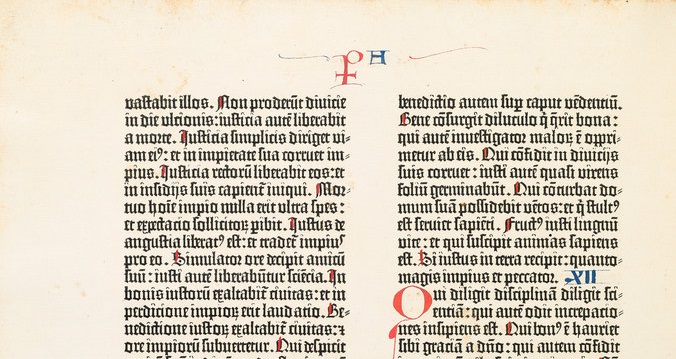 P H
vastabit illos. Non proderūt diuicie
in die vlcionis: iusticia autē liberabit
a morte. Iusticia simplicis diriget vi⸗
am eiꝰ: et in impietate sua corruet im⸗
pius. Iusticia rectorū liberabit eos: et
in insidijs suis capientˀ iniqui. Mor⸗
tuo hoīe impio nulla erit vltra spes:
et expectacio sollicitoꝝ ꝑibit. Iustus de
angustia liberatꝰ est: et tradetˀ impiꝰ
pro eo. Simulator ore decipit amicū
suū: iusti autē liberabūtur sciēcia. In
bonis iustorū exaltabitˀ ciuitas: et in
perdicione impioꝝ erit laudacio. Be⸗
nedictione iustoꝝ exaltabitˀ ciuitas: ⁊
ore impiorū subuertetur. Qui despicit
benedictio autem suꝑ caput vēdentiū.
Bene cōsurgit diluculo q̄ q̄rit bona:
qui autē inuestigator maloꝝ ē oppri⸗
metur ab eis. Qui cōfidit in diuicijs
suis corruet: iusti autē quasi virens
foliū germinabūt. Qui cōturbat do⸗
mum suā possidebit vētos: et q̄ stultꝰ
est seruiet sapiēti. Fructꝰ iusti lignū
vite: et qui suscipit animas sapiens
est. Si iustus in terra recipit: quanto⸗
magis impius et peccator. XII
Qui diligit disciplinā diligit sci⸗
entiā: qui autē odit increpacio⸗
nes insipiens est. Qui bonꝰ ē hauriet
sibi graciā a dn̄o: qui autem cōfidit